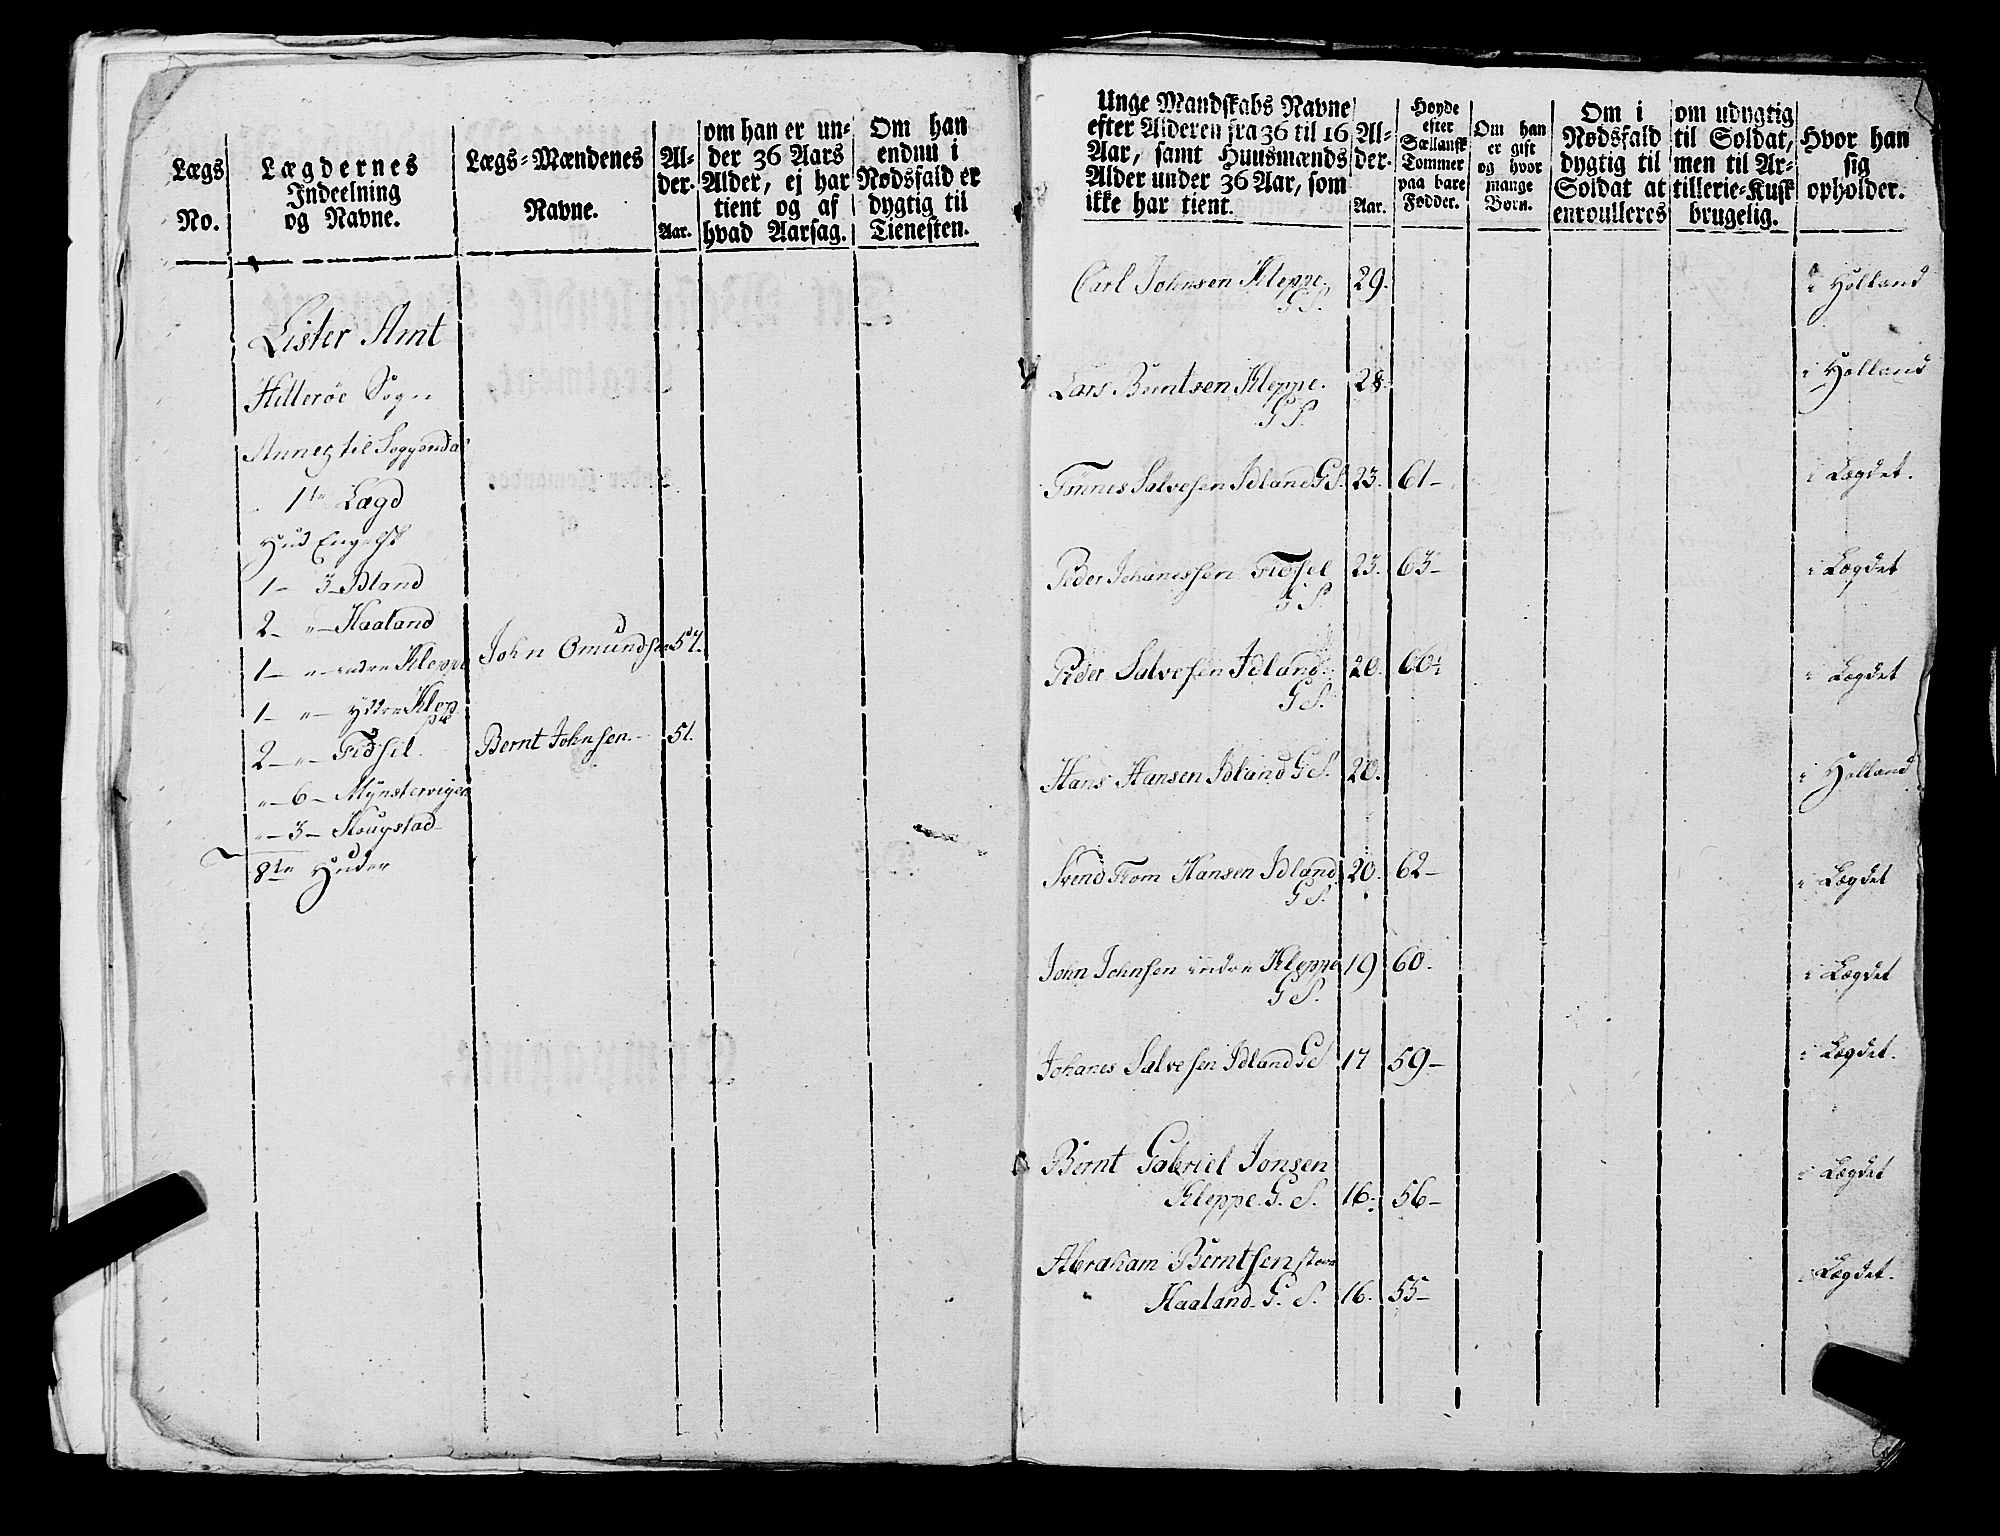 Lægs
No.
Lægdernes
Indeelning
og Navne.
Lægs-Mændenes
Navne.
Al-
der.
Aar.
om han er un-
der 36 Aars
Alder, ej har
tient og af
hvad Aarsag.
Om han
endnu i
Nødsfald er
dygtig til
Tienesten.
Lister Amt
Hitterøe Sogn
Annex til Soggendal
1te Lægd
Hud Engelsk
1 - 3 - Idland
2 - " - Haaland
1 - " - indre Kleppe
John Omundsen 57.
1 - " - ydtre Klep
pe
2 - " - Fidsel.
Bernt Johnsen - 51.
" - 6 - Mynstervigen
" - 3 - Rougstad
8te Huder
Unge Mandskabs Navne
efter Alderen fra 36 til 16
Aar, samt Huusmænds
Alder under 36 Aar, som
ikke har tient.
Al-
der.
Aar.
Høyde
efter
Sællansk
Tommer
paa bare
Fødder.
Om han
er gift
og hvor
mange
Børn.
Om i
Nødsfald
dygtig til
Soldat at
enroulleres
om udygtig
til Soldat,
men til Ar-
tillerie-Kusk
brugelig.
Hvor han
sig
opholder.
Carl Johnsen Kleppe 29. i Holland
G S.
Lars Berntsen Kleppe. 28. i Holland
G S.
Tønnes Salvesen Idland G S. 23. 61 - i Lægdet.
Peder Johanessen Fidsel 23. 63 - i Lægdet
G S.
Peder Salvesen Idland 20. 60 i Lægdet
G S.
Hans Hansen Idland G S. 20. i Holland
Svend Trom Hansen Idland 20. 62 - i Lægdet
G S.
John Johnsen indre Kleppe 19 60. i Lægdet
G S.
Johanes Salvesen Idland G S 17 59 - i Lægdet.
Bernt Gabriel Jonsen i Lægdet
Kleppe. G. S. 16. 56 -
Abraham Berntsen store i Lægdet.
Haaland G. S. 16. 55 -